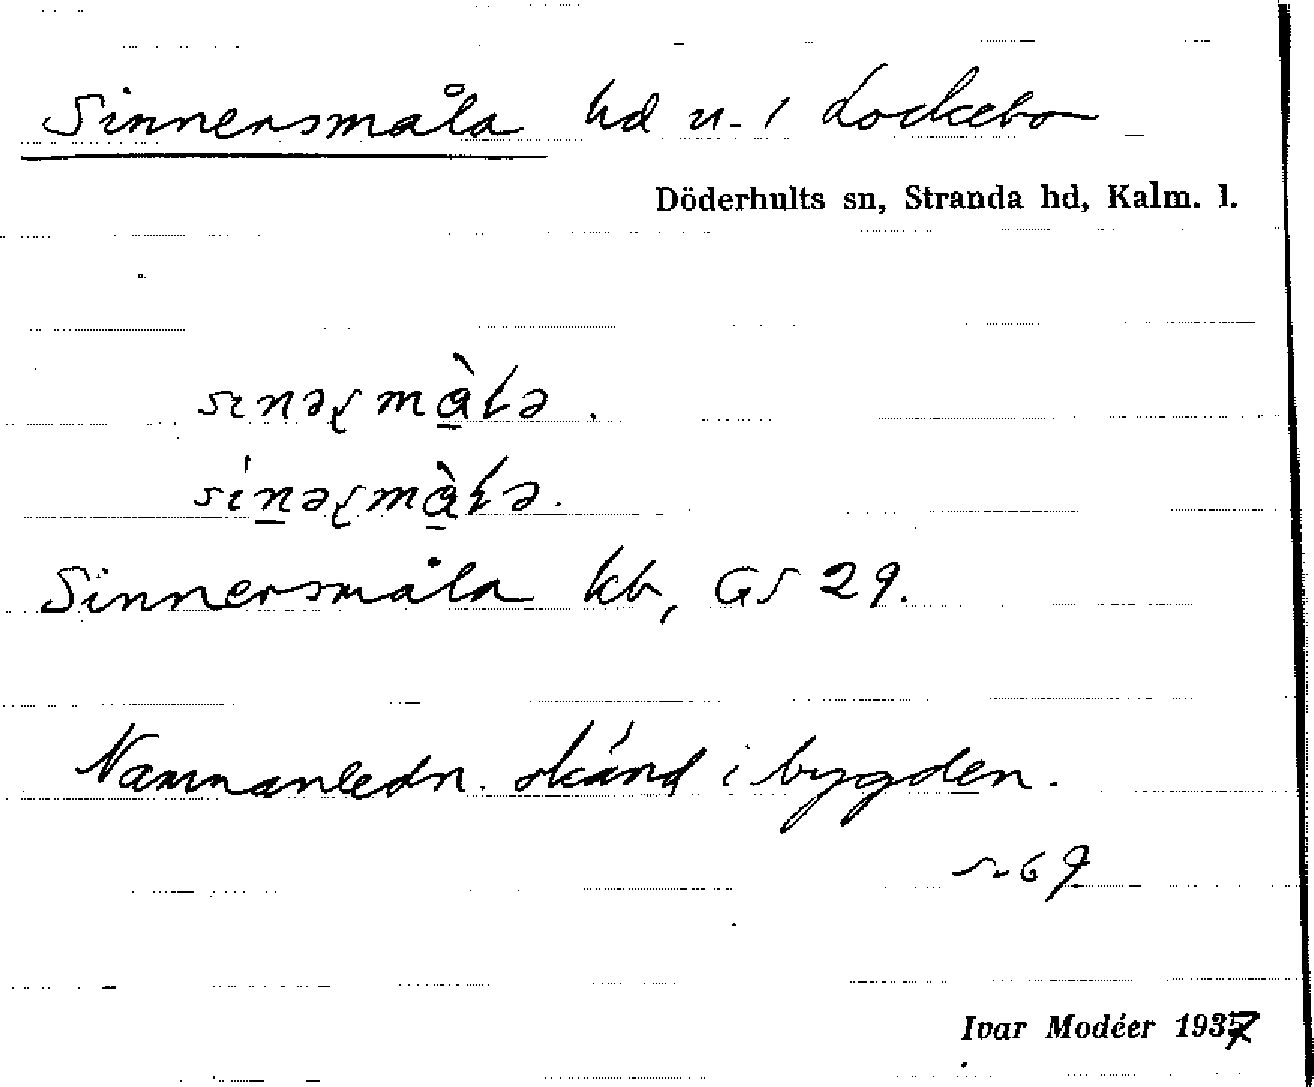 Sinnersmåla hd u. / Lockebo
Döderhults sn, Stranda hd, Kalm. l.
sınəɽmàɫə.
sínəɽmàɫə.
Sinnersmåla kb, GS 29.
Namnanledn. okänd i bygden.
s. 69
Ivar Modéer 1937